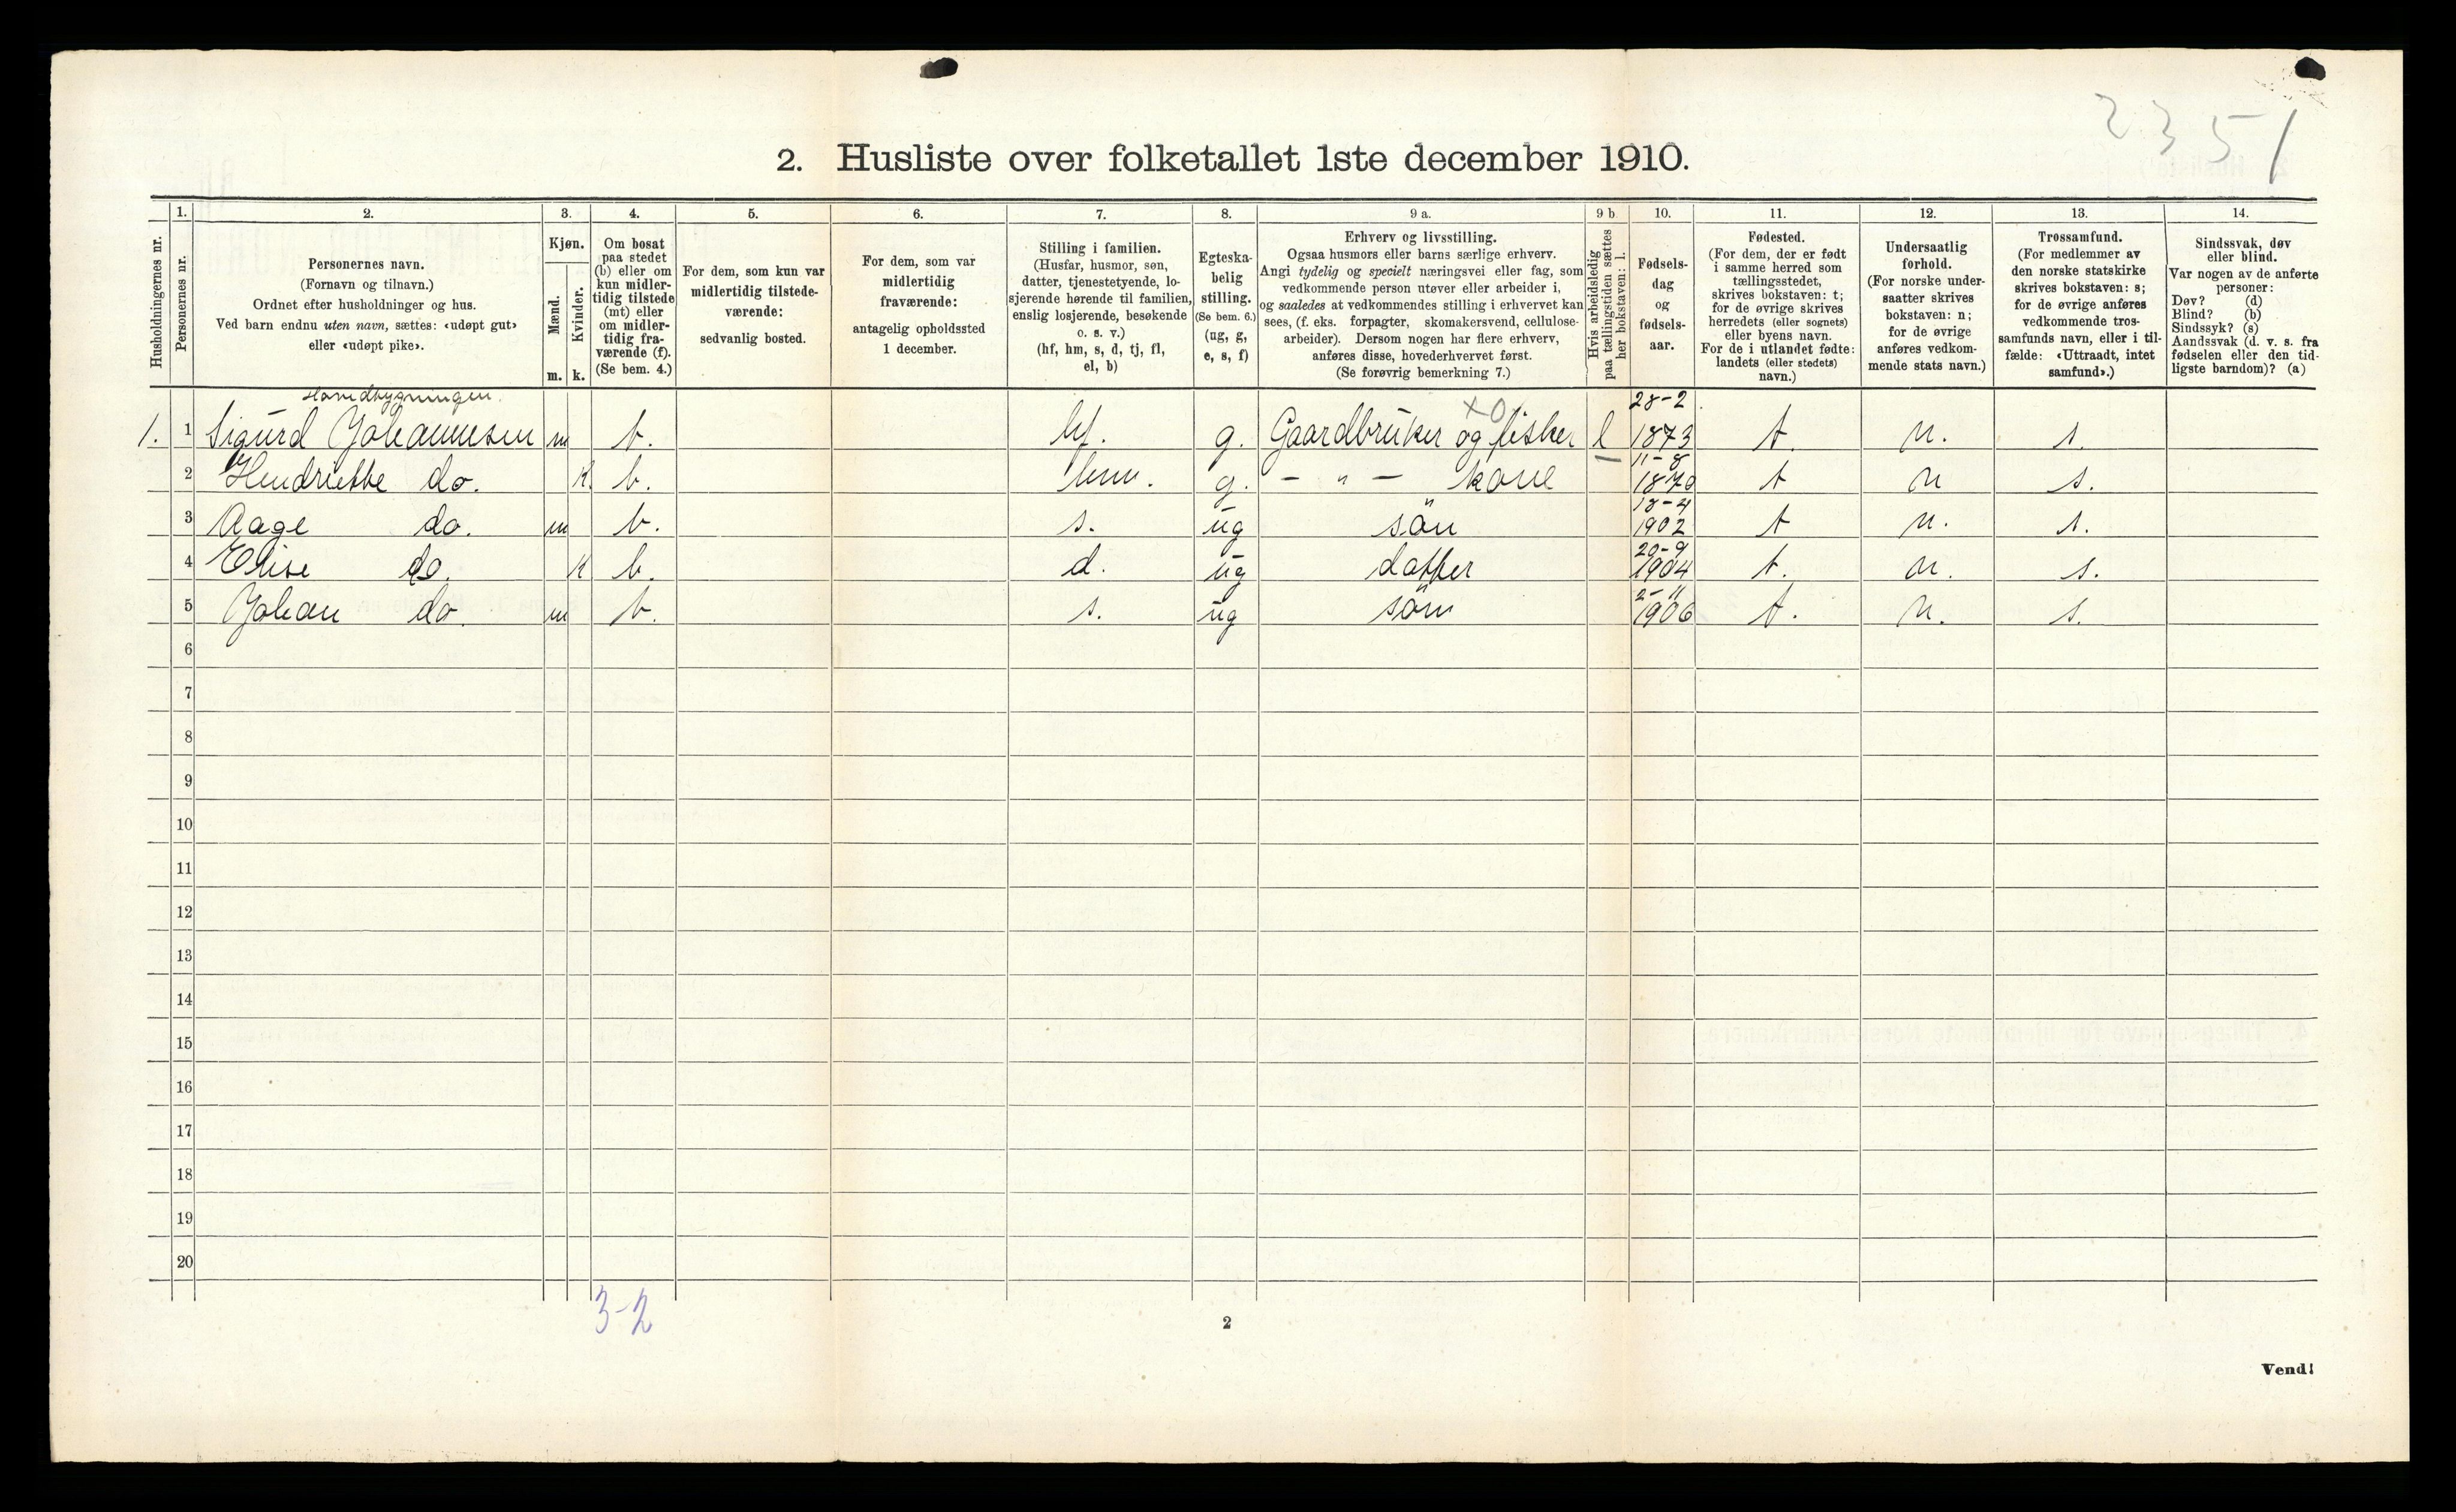 2351
2. Husliste over folketallet 1ste december 1910.
Husholdningernes nr.
1. Personernes nr.
2. Personernes navn.
(Fornavn og tilnavn.)
Ordnet efter husholdninger og hus.
Ved barn endnu uten navn, sættes: «udøpt gut»
eller «udøpt pike».
3. Kjøn.
Mænd. m.
Kvinder. k.
4. Om bosat
paa stedet
(b) eller om
kun midler-
tidig tilstede
(mt) eller
om midler-
tidig fra-
værende (f).
(Se bem. 4.)
5. For dem, som kun var
midlertidig tilstede-
værende:
sedvanlig bosted.
6. For dem, som var
midlertidig
fraværende:
antagelig opholdssted
1 december.
7. Stilling i familien.
(Husfar, husmor, søn,
datter, tjenestetyende, lo-
sjerende hørende til familien,
enslig losjerende, besøkende
o. s. v.)
(hf, hm, s, d, tj, fl,
el, b)
8. Egteska-
belig
stilling.
(Se bem. 6.)
(ug, g,
e, s, f)
9 a. Erhverv og livsstilling.
Ogsaa husmors eller barns særlige erhverv.
Angi tydelig og specielt næringsvei eller fag, som
vedkommende person utøver eller arbeider i,
og saaledes at vedkommendes stilling i erhvervet kan
sees, (f. eks. forpagter, skomakersvend, cellulose-
arbeider). Dersom nogen har flere erhverv,
anføres disse, hovederhvervet først.
(Se forøvrig bemerkning 7.)
9 b Hvis arbeidsledig
paa tællingstiden sættes
her bokstaven: l.
10. Fødsels-
dag
og
fødsels-
aar.
11. Fødested.
(For dem, der er født
i samme herred som
tællingsstedet,
skrives bokstaven: t;
for de øvrige skrives
herredets (eller sognets)
eller byens navn.
For de i utlandet fødte:
landets (eller stedets)
navn.)
12. Undersaatlig
forhold.
(For norske under-
saatter skrives
bokstaven: n;
for de øvrige
anføres vedkom-
mende stats navn.)
13. Trossamfund.
(For medlemmer av
den norske statskirke
skrives bokstaven: s;
for de øvrige anføres
vedkommende tros-
samfunds navn, eller i til-
fælde: «Uttraadt, intet
samfund».)
14. Sindssvak, døv
eller blind.
Var nogen av de anførte
personer:
Døv? (d)
Blind? (b)
Sindssyk? (s)
Aandssvak (d. v. s. fra
fødselen eller den tid-
ligste barndom)? (a)
Hovedbygningen.
1. 1 Sigurd Johannesen m b. hf. g. Gaardbruker og fisker l 28-2 1873 t. n. s.
2 Hendriette do. K. b. hm. g. - " - kone 11-8 1870 t n s.
3 Aage do. m b. s. ug " sön 18-4 1902 t n. s.
4 Elise do. K b. d. ug datter 20-9 1904 t. n. s.
5 Johan do. m b. s. ug sön 2-11 1906 t. n. s.
6
7
8
9
10
11
12
13
14
15
16
17
18
19
20
3-2
2
Vend!